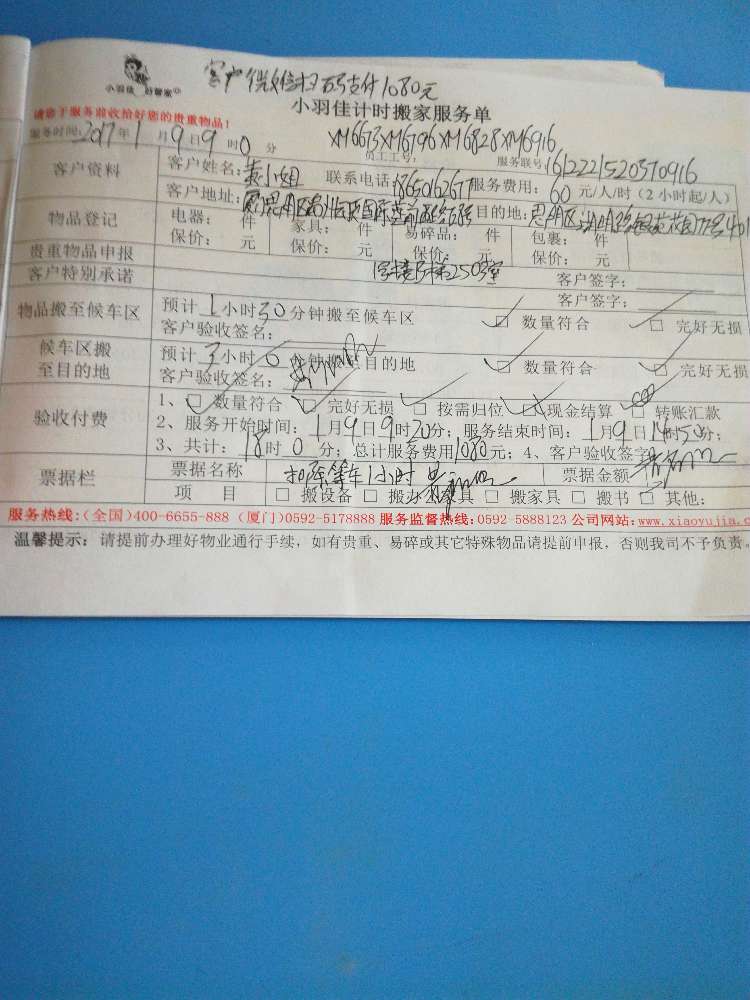 客户微信扫码支付1080元
小羽佳 好管家
小羽佳计时搬家服务单
请您于服务前收拾好您的贵重物品!
服务时间: 2017年1月9日9时0分 员工工号: XM6673XM6796XM6828XM6916 服务联号: 161222152037 0916
客户资料 客户姓名: 小姐 联系电话: 服务费用: 60 元/人/时（2小时起/人）
客户地址: 目的地: 思明区
物品登记 电器: 件 家具: 件 易碎品: 件 包裹: 件
保价: 元 保价: 元 保价: 元 保价: 元
贵重物品申报 2503室 客户签字:
客户特别承诺 客户签字:
物品搬至候车区 预计1小时30分钟搬至候车区 □ 数量符合 □ 完好无损
客户验收签名:
候车区搬至目的地 预计3小时0分钟搬至目的地 □ 数量符合 □ 完好无损
客户验收签名:
验收付费 1、□ 数量符合 □ 完好无损 □ 按需归位 □ 现金结算 □ 转账汇款
2、服务开始时间: 1月9日9时20分; 服务结束时间: 1月9日14时50分;
3、共计: 18时0分; 总计服务费用1080元; 4、客户验收签字:
票据栏 票据名称 扣除等车1小时 票据金额
项 目 □ 搬设备 □ 搬办公家具 □ 搬家具 □ 搬书 □ 其他:
服务热线:(全国)400-6655-888 (厦门)0592-5178888 服务监督热线:0592-5888123 公司网站:www.xiaoyujia.c
温馨提示: 请提前办理好物业通行手续，如有贵重、易碎或其它特殊物品请提前申报，否则我司不予负责。